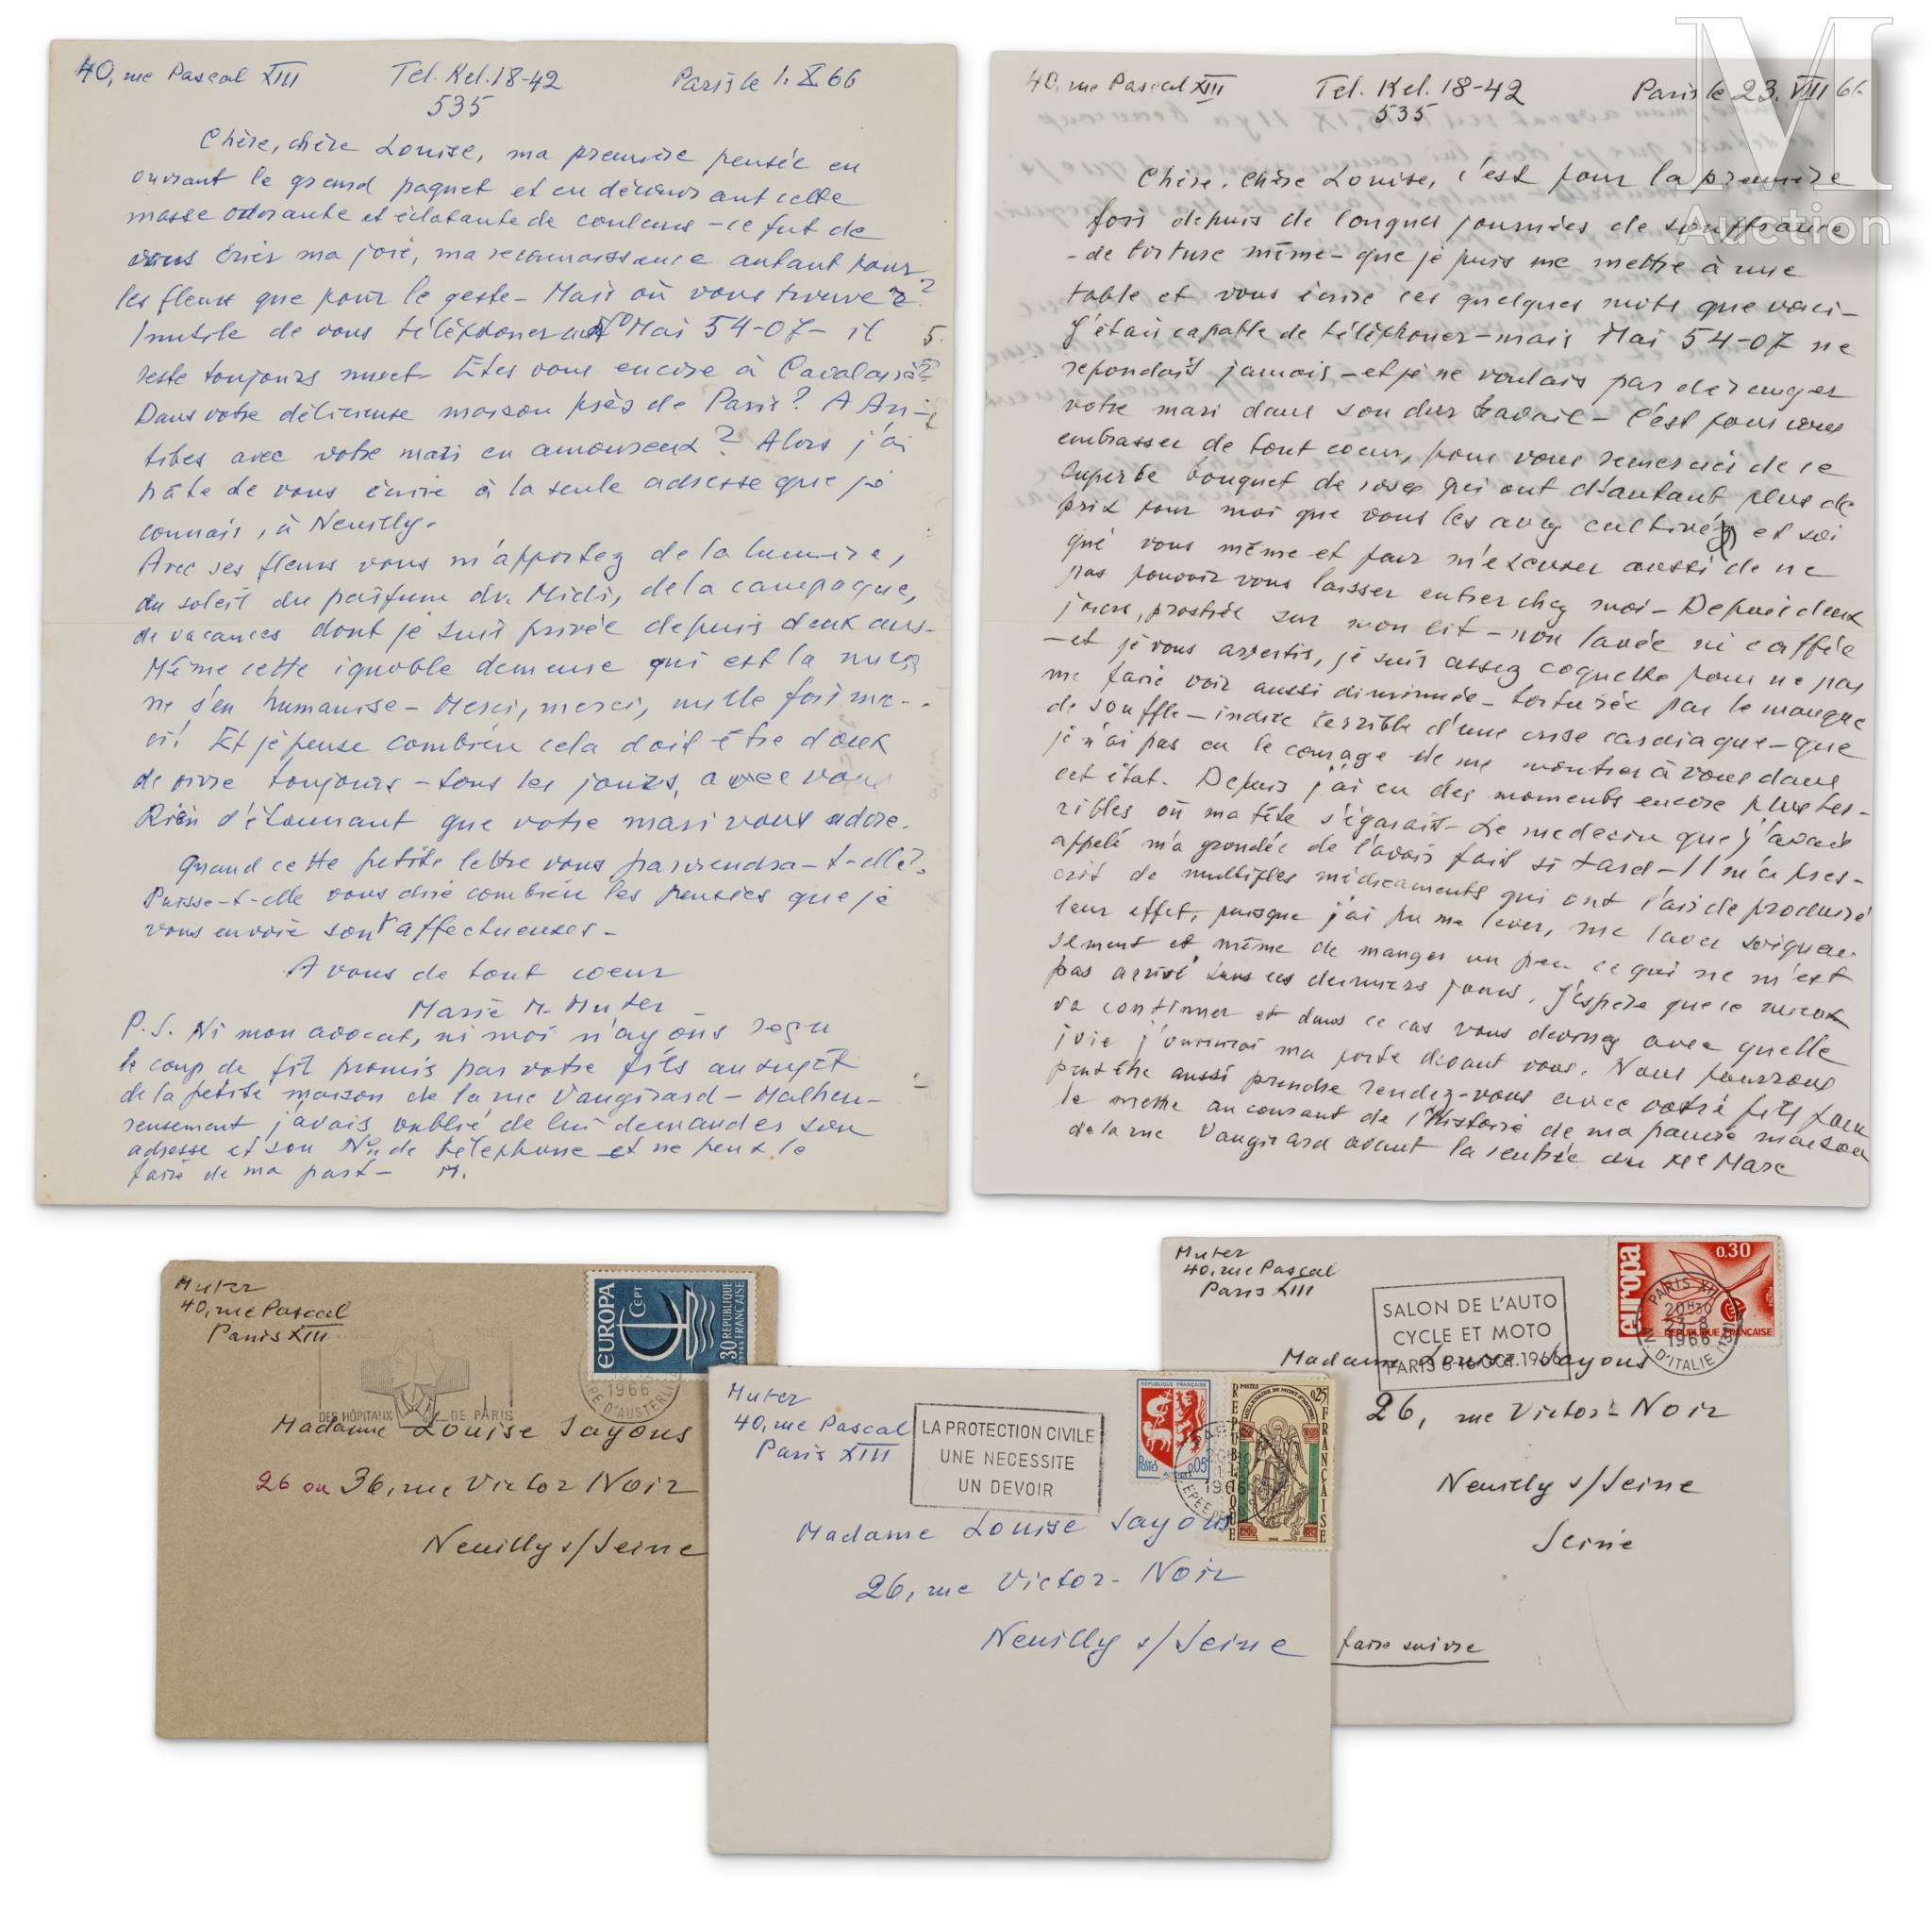 40, rue Pascal XIII Tel. Kel. 18-42 Paris le 1. X 66
535
Chère, chère Louise, ma première pensée en
ouvrant le grand paquet et en découvrant cette
masse odorante et éclatante de couleurs - ce fut de
vous crier ma joie, ma reconnaissance autant pour
les fleurs que pour le geste - Mais où vous trouver?
Inutile de vous téléphoner au No Mai 54-07 - il
reste toujours muet - Etes vous encore à
Dans votre délicieuse maison près de Paris? A An-
tibes avec votre mari en amoureux? Alors j'ai
hâte de vous écrire à la seule adresse que je
connais, à Neuilly.
Avec ses fleurs vous m'apportez de la lumière,
du soleil du parfum du Midi, de la campagne,
de vacances dont je suis privée depuis deux ans -
Même cette ignoble demeure qui est la
ne s'en humanise - Merci, merci, mille fois mer-
ci! Et je pense combien cela doit être doux
de vivre toujours - tous les jours, avec vous
Rien d'étonnant que votre mari vous adore.
Quand cette petite lettre vous parviendra-t-elle?
Puisse-t-elle vous dire combien les pensées que je
vous envoie sont affectueuses -
A vous de tout coeur
Marie M. Muter
P.S. Ni mon avocat, ni moi n'ayons reçu
le coup de fil promis par votre fils au sujet
de la petite maison de la rue Vaugirard - Malheu-
reusement j'avais oublié de lui demander son
adresse et son No de téléphone et ne peux le
faire de ma part - M.
40, rue Pascal XIII Tel. Kel. 18-42 Paris le 23. VIII 66
535
Chère, chère Louise, c'est pour la première
fois depuis de longues journées de souffrance
- de torture même - que je puis me mettre à une
table et vous écrire ces quelques mots que voici -
J'étais capable de téléphoner - mais Mai 54-07 ne
repondait jamais - et je ne voulais pas deranger
votre mari dans son dur travail - C'est pour vous
embrasser de tout coeur, pour vous remercier de ce
superbe bouquet de roses qui ont d'autant plus de
prix pour moi que vous les avez cultivées et
que vous même et pour m'excuser aussi de ne
pas pouvoir vous laisser entrer chez moi - Depuis deux
jours, prostrée sur mon lit - non lavée ni coiffée
- et je vous avertis, je suis assez coquette pour ne pas
me faire voir aussi diminuée - torturée par le manque
de souffle - indice terrible d'une crise cardiaque - que
je n'ai pas eu le courage de me montrer à vous dans
cet état. Depuis j'ai eu des moments encore plus ter-
ribles où ma tête s'égarait - Le medecin que j'avais
appelé m'a grondée de l'avoir fait si tard - Il m'a pres-
crit de multiples médicaments qui ont l'air de produire
leur effet, puisque j'ai pu me lever, me laver soigneu-
sement et même de manger un peu ce qui ne m'est
pas arrivé tous ces derniers jours. J'espère que ce mieux
va continuer et dans ce cas vous devinez avec quelle
joie j'ouvrirai ma porte devant vous. Nous pourrons
peut être aussi prendre rendez-vous avec votre fils pour
le mettre au courant de l'histoire de ma pauvre maison
de la rue Vaugirard avant la rentrée du Me Marc
M Auction
Muter
40, rue Pascal
Paris XIII
EUROPA CEPT
0,30 REPUBLIQUE FRANÇAISE
1966
DES HÔPITAUX DE PARIS
Madame Louise Sayous
26 ou 36, rue Victor Noir
Neuilly s/Seine
Muter
40, rue Pascal
Paris XIII
LA PROTECTION CIVILE
UNE NECESSITE
UN DEVOIR
REPUBLIQUE FRANÇAISE
POSTES 0,05
0,25
REPUBLIQUE FRANÇAISE
Madame Louise Sayous
26, rue Victor-Noir
Neuilly s/Seine
Muter
40, rue Pascal
Paris XIII
SALON DE L'AUTO
CYCLE ET MOTO
PARIS 6-16 OCT. 1966
europa 0,30
REPUBLIQUE FRANÇAISE
PARIS XIII
20H30
23-8
1966
D'ITALIE (13E)
Madame Louise Sayous
26, rue Victor-Noir
Neuilly s/Seine
Seine
faire suivre